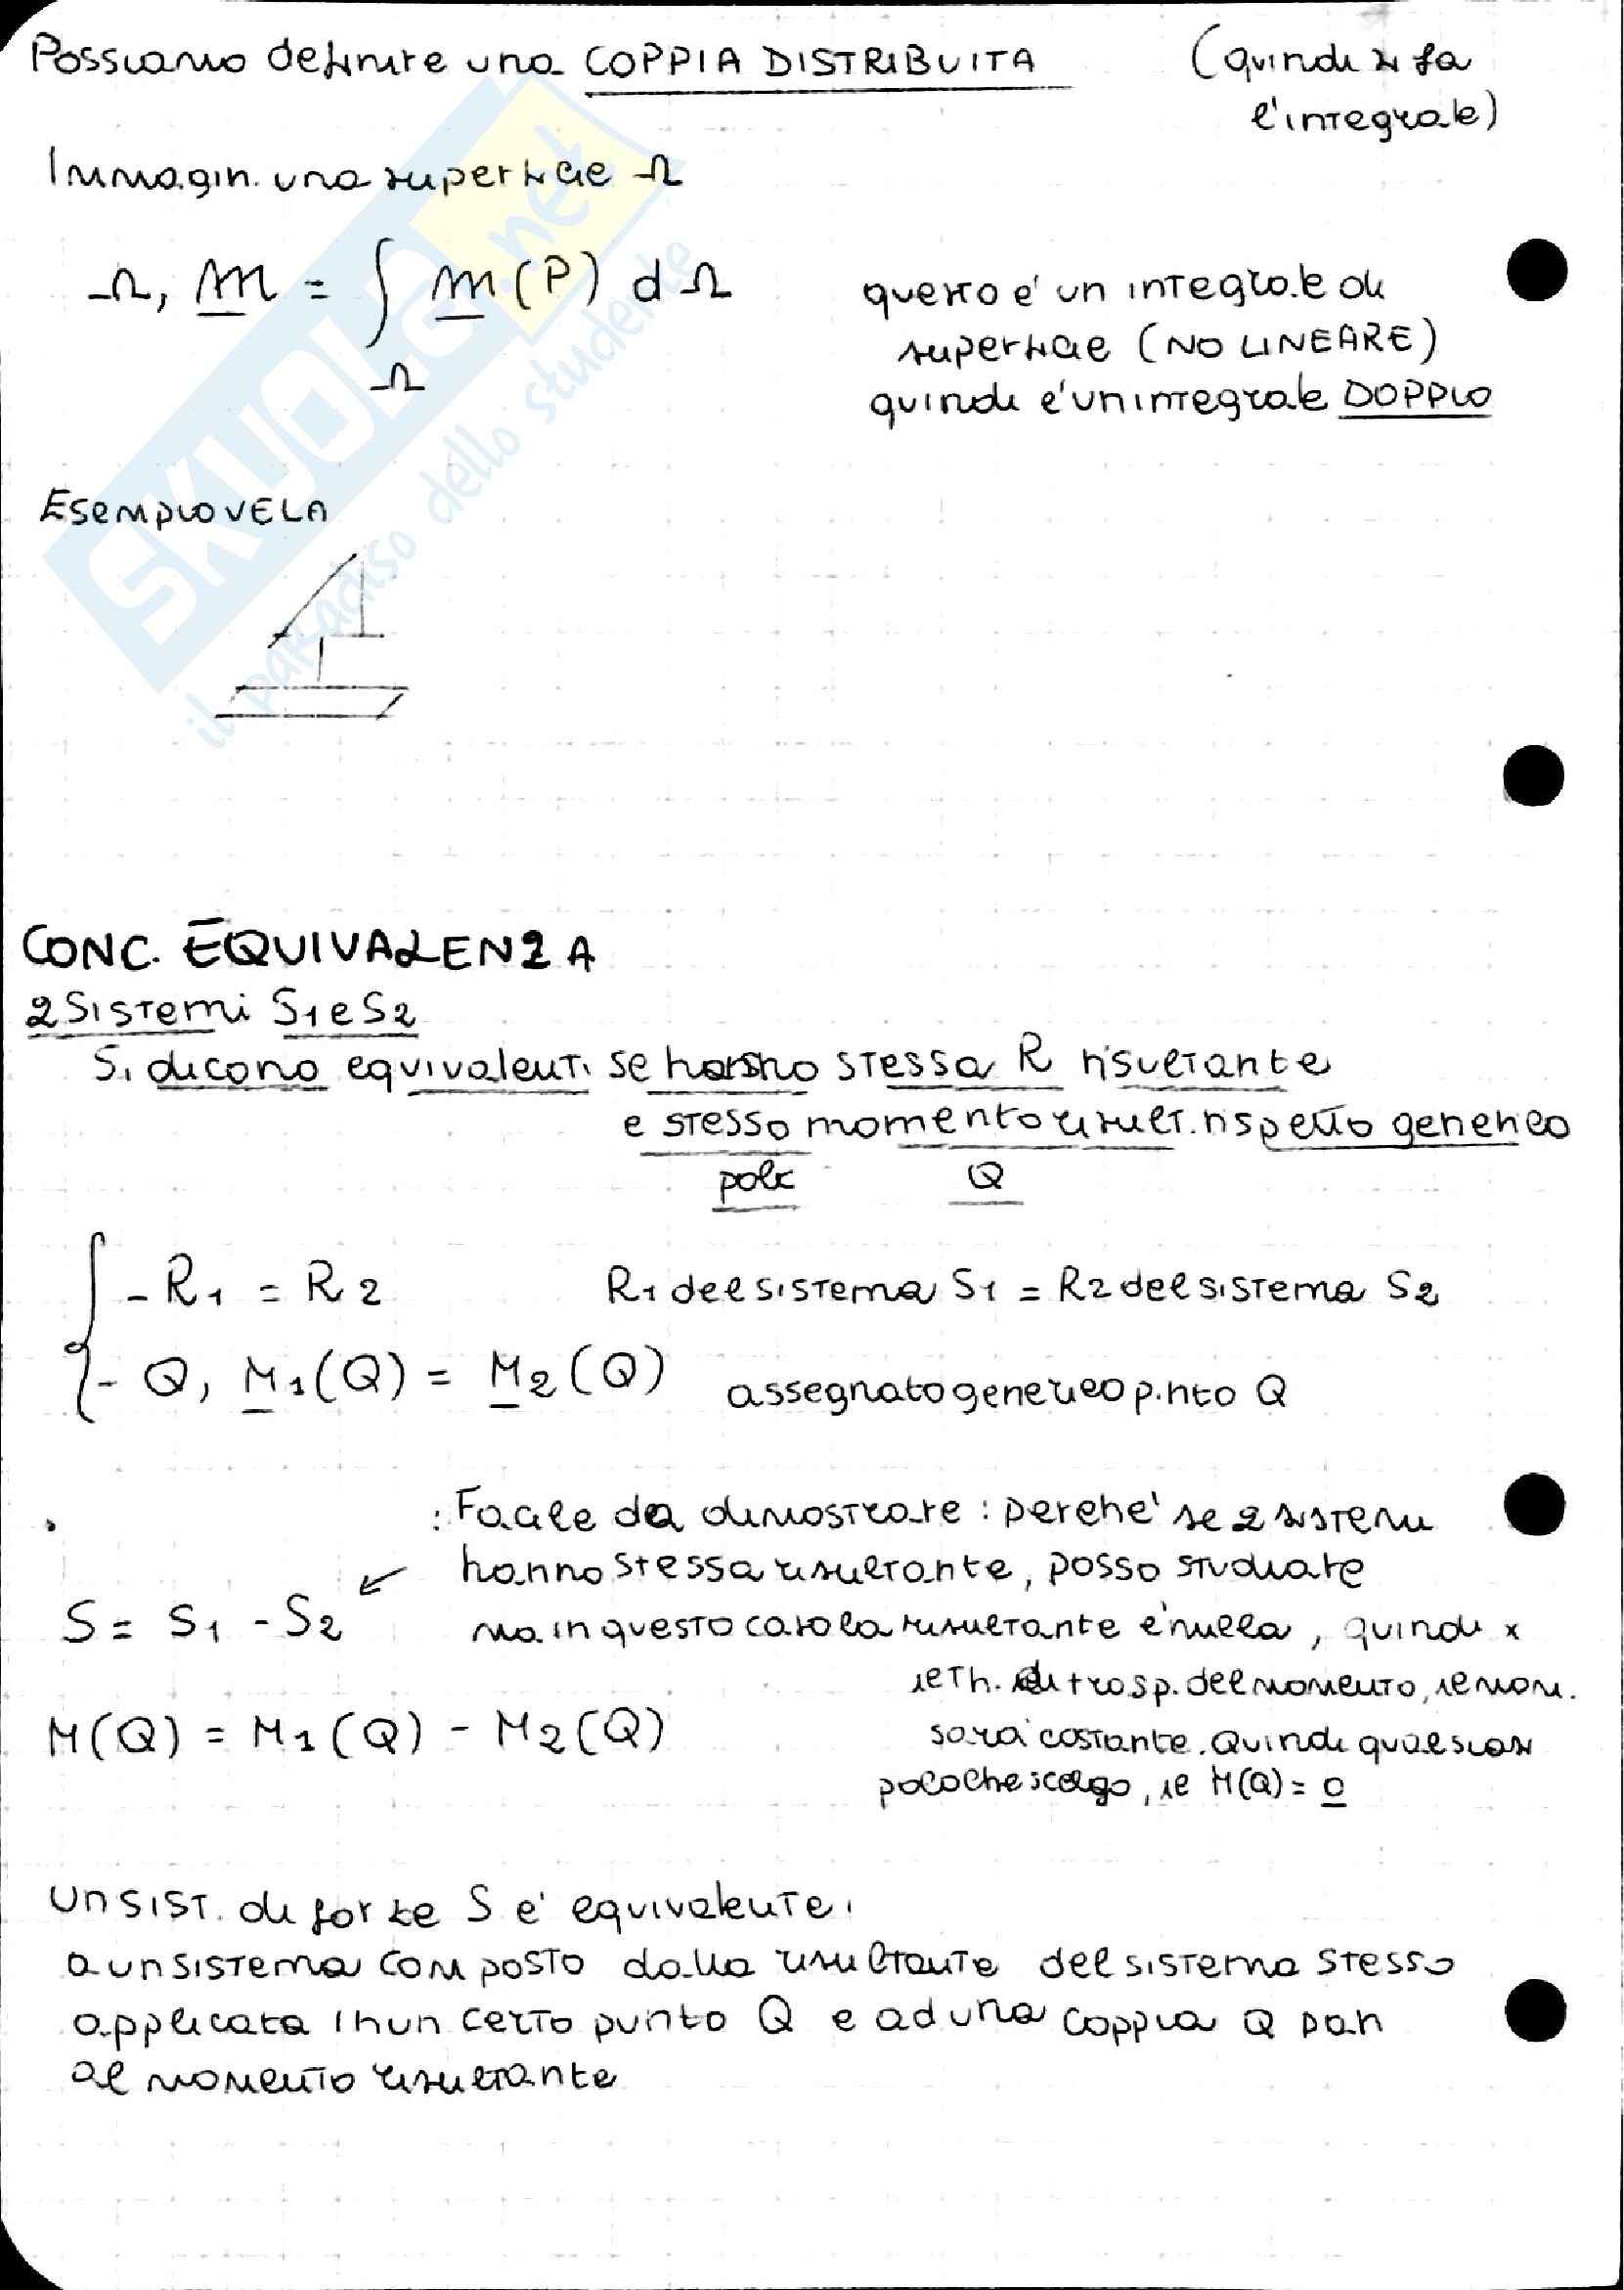 Possiamo definire una COPPIA DISTRIBUITA (quindi si fa
l'integrale)
Immagin. una superficie Ω
Ω, m = ∫ m(P) dΩ
Ω
questo e' un integrale di
superficie (NO LINEARE)
quindi e' un integrale DOPPIO
Esempio VELA
SKUOLA.net
il paradiso dello studente
CONC. EQUIVALENZA
2 Sistemi S1 e S2
Si dicono equivalenti se hanno stessa R risultante
e stesso momento risult. rispetto generico
polo Q
- R1 = R2 R1 del sistema S1 = R2 del sistema S2
- Q, M1(Q) = M2(Q) assegnato generico p.nto Q
: Facile da dimostrare : perche' se 2 sistemi
hanno stessa risultante, posso studiare
S = S1 - S2 ma in questo caso la risultante e' nulla, quindi x
il th. di trasp. del momento, il mom.
M(Q) = M1(Q) - M2(Q) sara' costante. Quindi qualsiasi
polo che scelgo, il M(Q) = 0
Un SIST. di forze S e' equivalente
a un sistema composto dalla risultante del sistema stesso
applicata in un certo punto Q e ad una coppia Q pari
al momento risultante